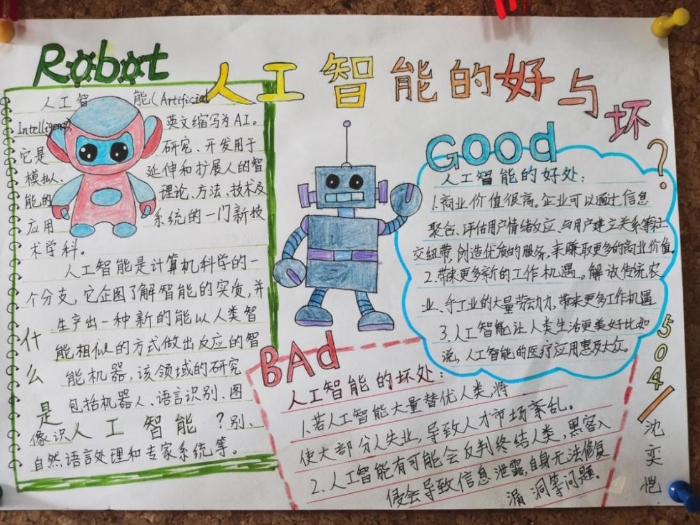 Robot
人工智能的好与坏?
人工智 能(Artificial
Intelligence 英文缩写为AI。
它是 研究、开发用于
模拟、 延伸和扩展人的智
能的 理论、方法、技术及
应用 系统的一门新技
术学科。
人工智能是计算机科学的一
个分支，它企图了解智能的实质，并
生产出一种新的能以人类智
能相似的方式做出反应的智
能机器，该领域的研究
包括机器人、语言识别、图
像识 别、
自然语言处理和专家系统等。
什么是人工智能?
Good
人工智能的好处:
1.商业价值很高，企业可以通过信息
聚合、评估用户情绪反应，与用户建立关系等社
交纽带，创造优质的服务，来赚取更多的商业价值
2.带来更多新的工作机遇。解放传统农
业、手工业的大量劳动力，带来更多工作机遇
3.人工智能让人类生活更美好比如
说，人工智能的医疗应用惠及大众。
BAd
人工智能的坏处:
1.若人工智能大量替代人类，将
使大部分人失业，导致人才市场紊乱。
2.人工智能有可能会反判终结人类，黑客入
侵会导致信息泄露，自身无法修复
漏洞等问题。
504
沈奕恺